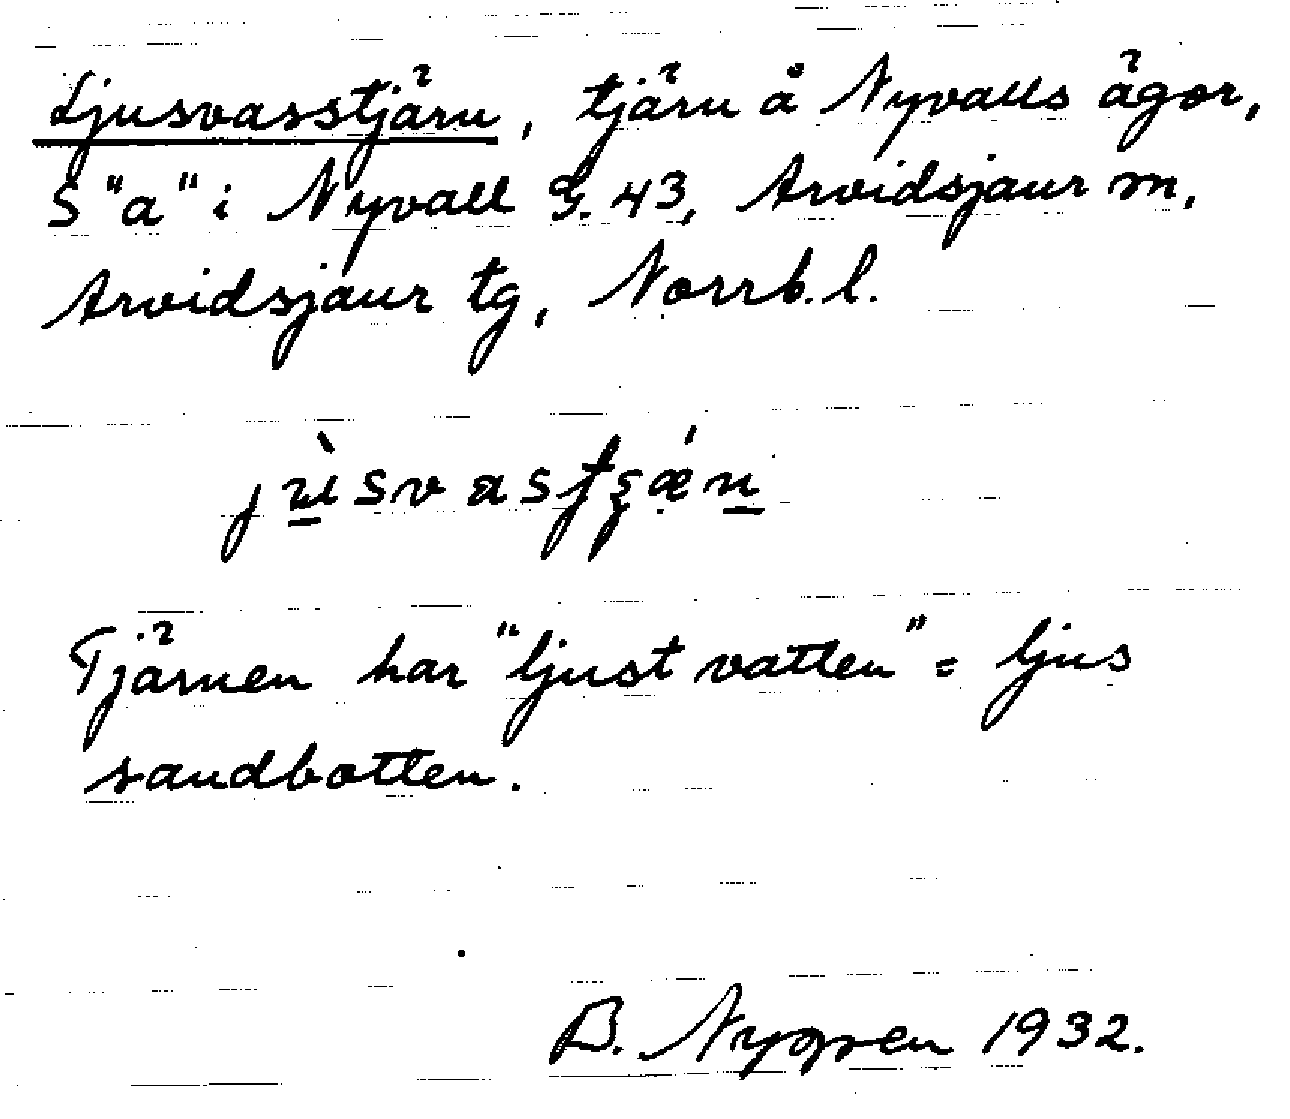 Ljusvasstjärn, tjärn å Nyvalls ägor,
S "a" i Nyvall G. 43, Arvidsjaur m,
Arvidsjaur tg, Norrb. l.
Tjärnen har "ljust vatten" = ljus
sandbotten.
B. Nygren 1932.